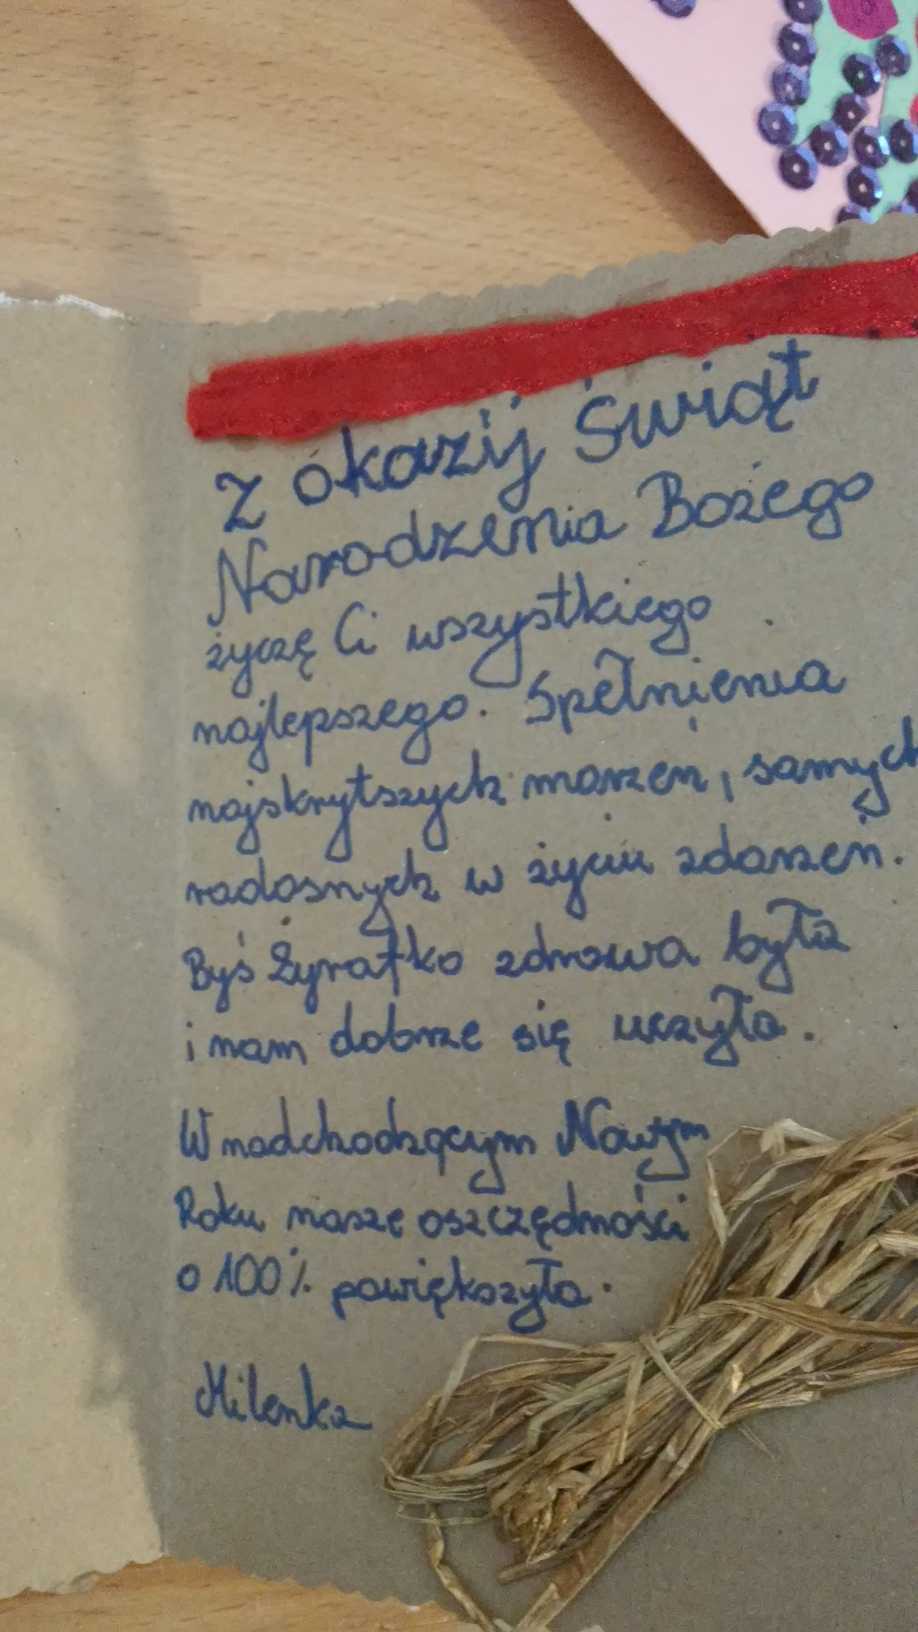 Z okazij Świąt
Narodzenia Bożego
życzę Ci wszystkiego
najlepszego. Spełnienia
najskrytszych marzeń, samych
radosnych w życiu zdarzeń.
Byś Żyrafko zdrowa była
i nam dobrze się uczyła.
W nadchodzącym Nowym
Roku nasze oszczędności
o 100% powiększyła.
Milenka